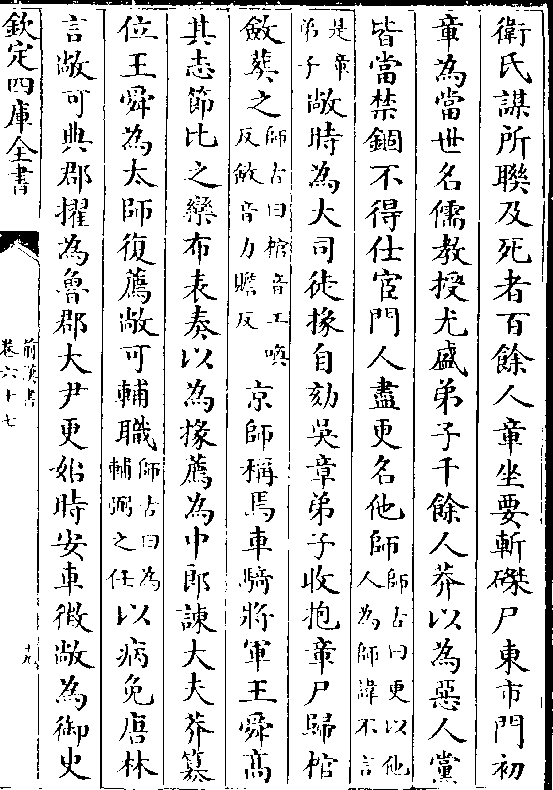 衛氏謀所聯及死者百餘人章坐要斬磔尸東市門初
章為當世名儒教授尤盛弟子千餘人莽以為惡人黨
皆當禁錮不得仕宦門人盡更名他師師古曰更以他人為師諱不言
是章弟子敞時為大司徒掾自劾吳章弟子收抱章尸歸棺
斂葬之師古曰棺音工喚反斂音力贍反京師稱焉車騎將軍王舜高
其志節比之欒布表奏以為掾薦為中郎諫大夫莽篡
位王舜為太師復薦敞可輔職師古曰為輔弼之任以病免唐林
言敞可典郡擢為魯郡大尹更始時安車徵敞為御史
欽定四庫全書
前漢書
卷六十七
十九